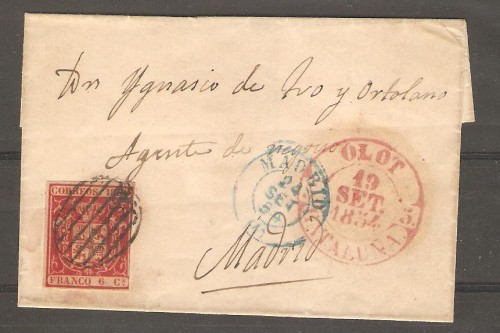 Dn Ygnasio de Yvo y Ortolano
Agente de negocio
Madrid
CORREOS
FRANCO 6 Cs.
MADRID
24
SET
OLOT
19
SET.
1854
CATALUÑA